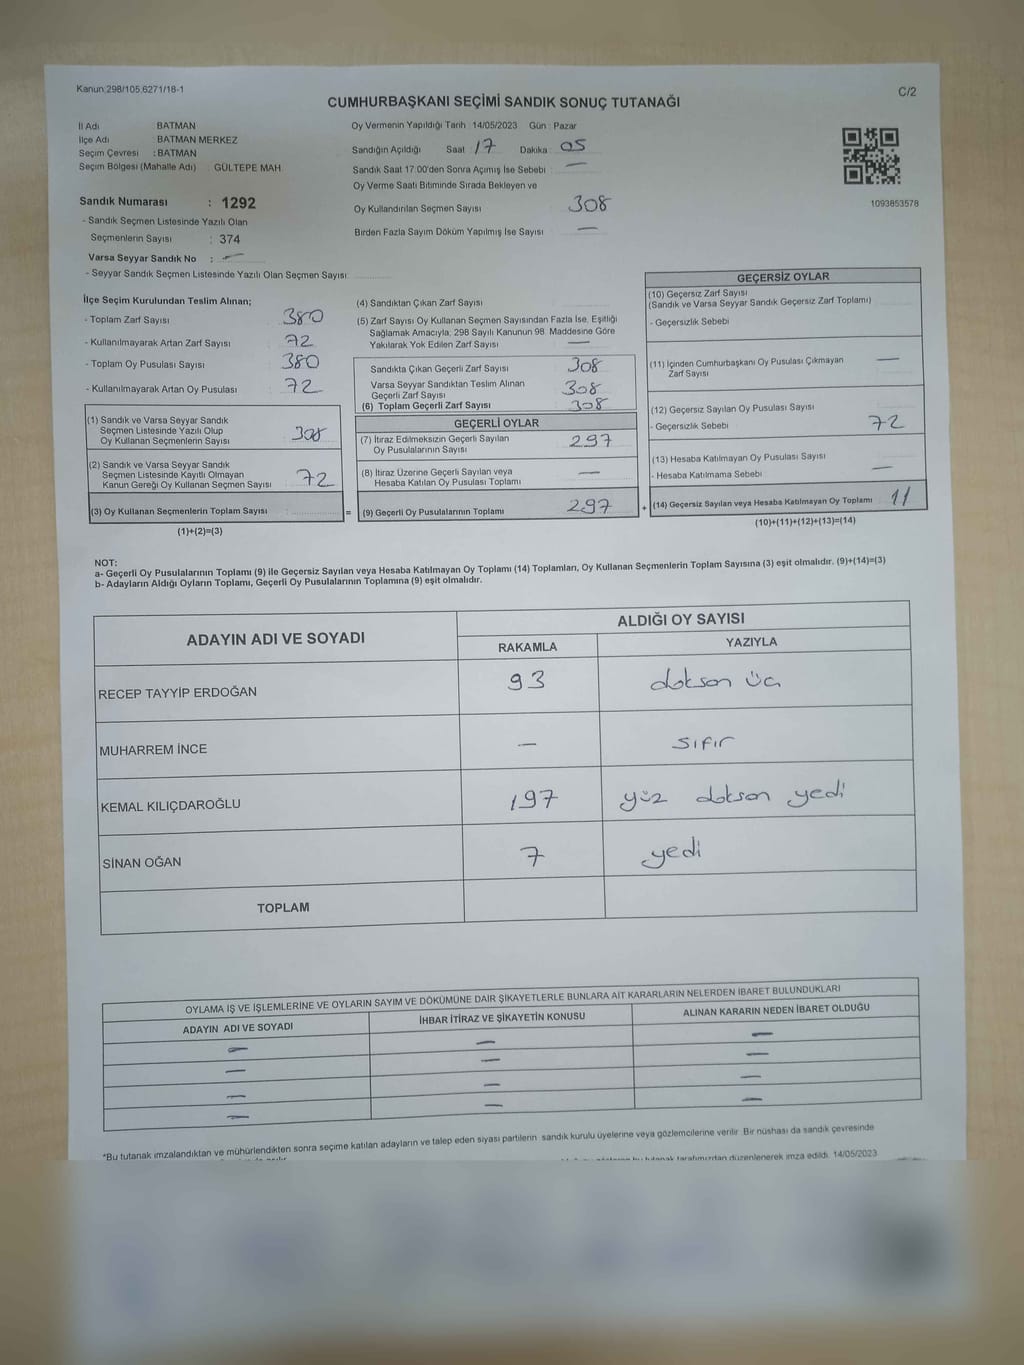 Kanun 298/105,6271/18-1
C/2
CUMHURBAŞKANI SEÇİMİ SANDIK SONUÇ TUTANAĞI
İl Adı BATMAN
İlçe Adı BATMAN MERKEZ
Seçim Çevresi : BATMAN
Seçim Bölgesi (Mahalle Adı) GÜLTEPE MAH.
Sandık Numarası : 1292
- Sandık Seçmen Listesinde Yazılı Olan
Seçmenlerin Sayısı : 374
Varsa Seyyar Sandık No : —
- Seyyar Sandık Seçmen Listesinde Yazılı Olan Seçmen Sayısı
Oy Vermenin Yapıldığı Tarih 14/05/2023 Gün : Pazar
Sandığın Açıldığı Saat 17 Dakika 05
Sandık Saat 17.00'den Sonra Açımış İse Sebebi : —
Oy Verme Saati Bitiminde Sırada Bekleyen ve
Oy Kullandırılan Seçmen Sayısı 308
Birden Fazla Sayım Döküm Yapılmış İse Sayısı —
1093853578
İlçe Seçim Kurulundan Teslim Alınan;
- Toplam Zarf Sayısı 380
- Kullanılmayarak Artan Zarf Sayısı 72
- Toplam Oy Pusulası Sayısı 380
- Kullanılmayarak Artan Oy Pusulası 72
(1) Sandık ve Varsa Seyyar Sandık
Seçmen Listesinde Yazılı Olup
Oy Kullanan Seçmenlerin Sayısı 308
(2) Sandık ve Varsa Seyyar Sandık
Seçmen Listesinde Kayıtlı Olmayan
Kanun Gereği Oy Kullanan Seçmen Sayısı 72
(3) Oy Kullanan Seçmenlerin Toplam Sayısı
=
(1)+(2)=(3)
(4) Sandıktan Çıkan Zarf Sayısı
(5) Zarf Sayısı Oy Kullanan Seçmen Sayısından Fazla İse, Eşitliği
Sağlamak Amacıyla, 298 Sayılı Kanunun 98. Maddesine Göre
Yakılarak Yok Edilen Zarf Sayısı —
Sandıkta Çıkan Geçerli Zarf Sayısı 308
Varsa Seyyar Sandıktan Teslim Alınan
Geçerli Zarf Sayısı 308
(6) Toplam Geçerli Zarf Sayısı 308
GEÇERLİ OYLAR
(7) İtiraz Edilmeksizin Geçerli Sayılan
Oy Pusulalarının Sayısı 297
(8) İtiraz Üzerine Geçerli Sayılan veya
Hesaba Katılan Oy Pusulası Toplamı —
(9) Geçerli Oy Pusulalarının Toplamı 297
+
GEÇERSİZ OYLAR
(10) Geçersiz Zarf Sayısı
(Sandık ve Varsa Seyyar Sandık Geçersiz Zarf Toplamı)
- Geçersizlik Sebebi
(11) İçinden Cumhurbaşkanı Oy Pusulası Çıkmayan
Zarf Sayısı —
(12) Geçersiz Sayılan Oy Pusulası Sayısı
- Geçersizlik Sebebi 72
(13) Hesaba Katılmayan Oy Pusulası Sayısı
- Hesaba Katılmama Sebebi —
(14) Geçersiz Sayılan veya Hesaba Katılmayan Oy Toplamı 11
(10)+(11)+(12)+(13)=(14)
NOT:
a- Geçerli Oy Pusulalarının Toplamı (9) ile Geçersiz Sayılan veya Hesaba Katılmayan Oy Toplamı (14) Toplamları, Oy Kullanan Seçmenlerin Toplam Sayısına (3) eşit olmalıdır. (9)+(14)=(3)
b- Adayların Aldığı Oyların Toplamı, Geçerli Oy Pusulalarının Toplamına (9) eşit olmalıdır.
ADAYIN ADI VE SOYADI
ALDIĞI OY SAYISI
RAKAMLA YAZIYLA
RECEP TAYYİP ERDOĞAN 93 doksan üç
MUHARREM İNCE — sıfır
KEMAL KILIÇDAROĞLU 197 yüz doksan yedi
SİNAN OĞAN 7 yedi
TOPLAM
OYLAMA İŞ VE İŞLEMLERİNE VE OYLARIN SAYIM VE DÖKÜMÜNE DAİR ŞİKAYETLERLE BUNLARA AİT KARARLARIN NELERDEN İBARET BULUNDUKLARI
ADAYIN ADI VE SOYADI İHBAR İTİRAZ VE ŞİKAYETİN KONUSU ALINAN KARARIN NEDEN İBARET OLDUĞU
— — —
— — —
— — —
— — —
*Bu tutanak imzalandıktan ve mühürlendikten sonra seçime katılan adayların ve talep eden siyasi partilerin sandık kurulu üyelerine veya gözlemcilerine verilir. Bir nüshası da sandık çevresinde
tarafımızdan düzenlenerek imza edildi. 14/05/2023